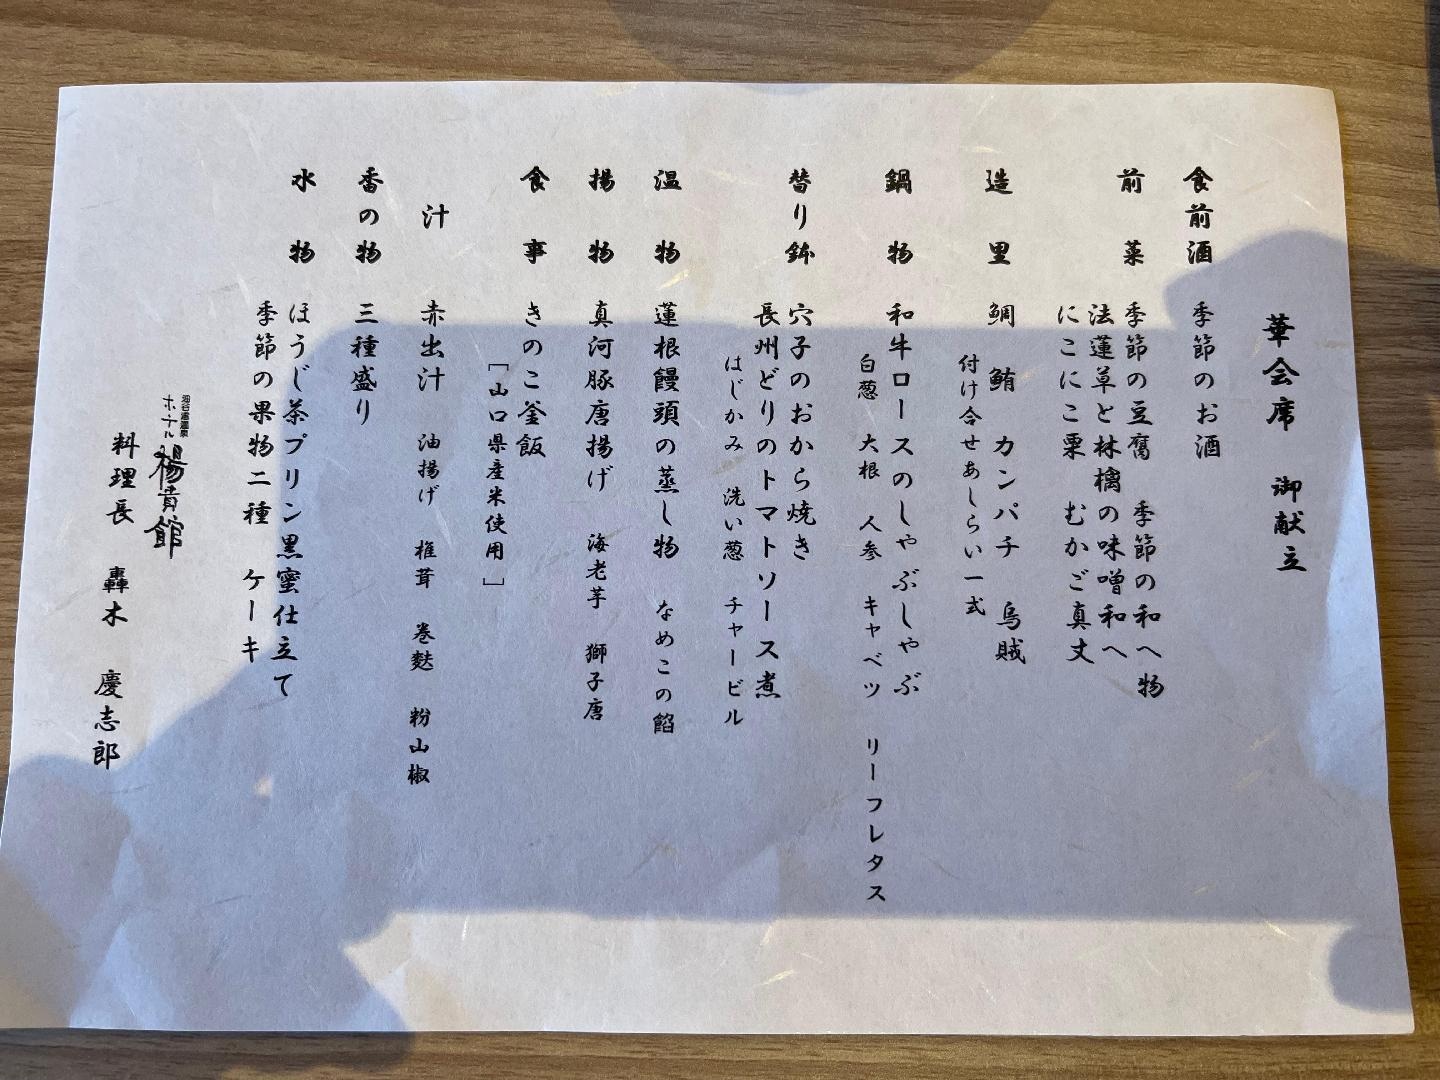 華会席　御献立
食前酒　季節のお酒
前菜　季節の豆腐　季節の和へ物
法蓮草と林檎の味噌和へ
にこにこ栗　むかご真丈
造里　鯛　鮪　カンパチ　烏賊
付け合せあしらい一式
鍋物　和牛ロースのしゃぶしゃぶ
白葱　大根　人参　キャベツ　リーフレタス
替り鉢　穴子のおから焼き
長州どりのトマトソース煮
はじかみ　洗い葱　チャービル
温物　蓮根饅頭の蒸し物　なめこの餡
揚物　真河豚唐揚げ　海老芋　獅子唐
食事　きのこ釜飯
［山口県産米使用］
汁　赤出汁　油揚げ　椎茸　巻麩　粉山椒
香の物　三種盛り
水物　ほうじ茶プリン黒蜜仕立て
季節の果物二種　ケーキ
油谷湾温泉
ホテル楊貴館
料理長　轟木　慶志郎